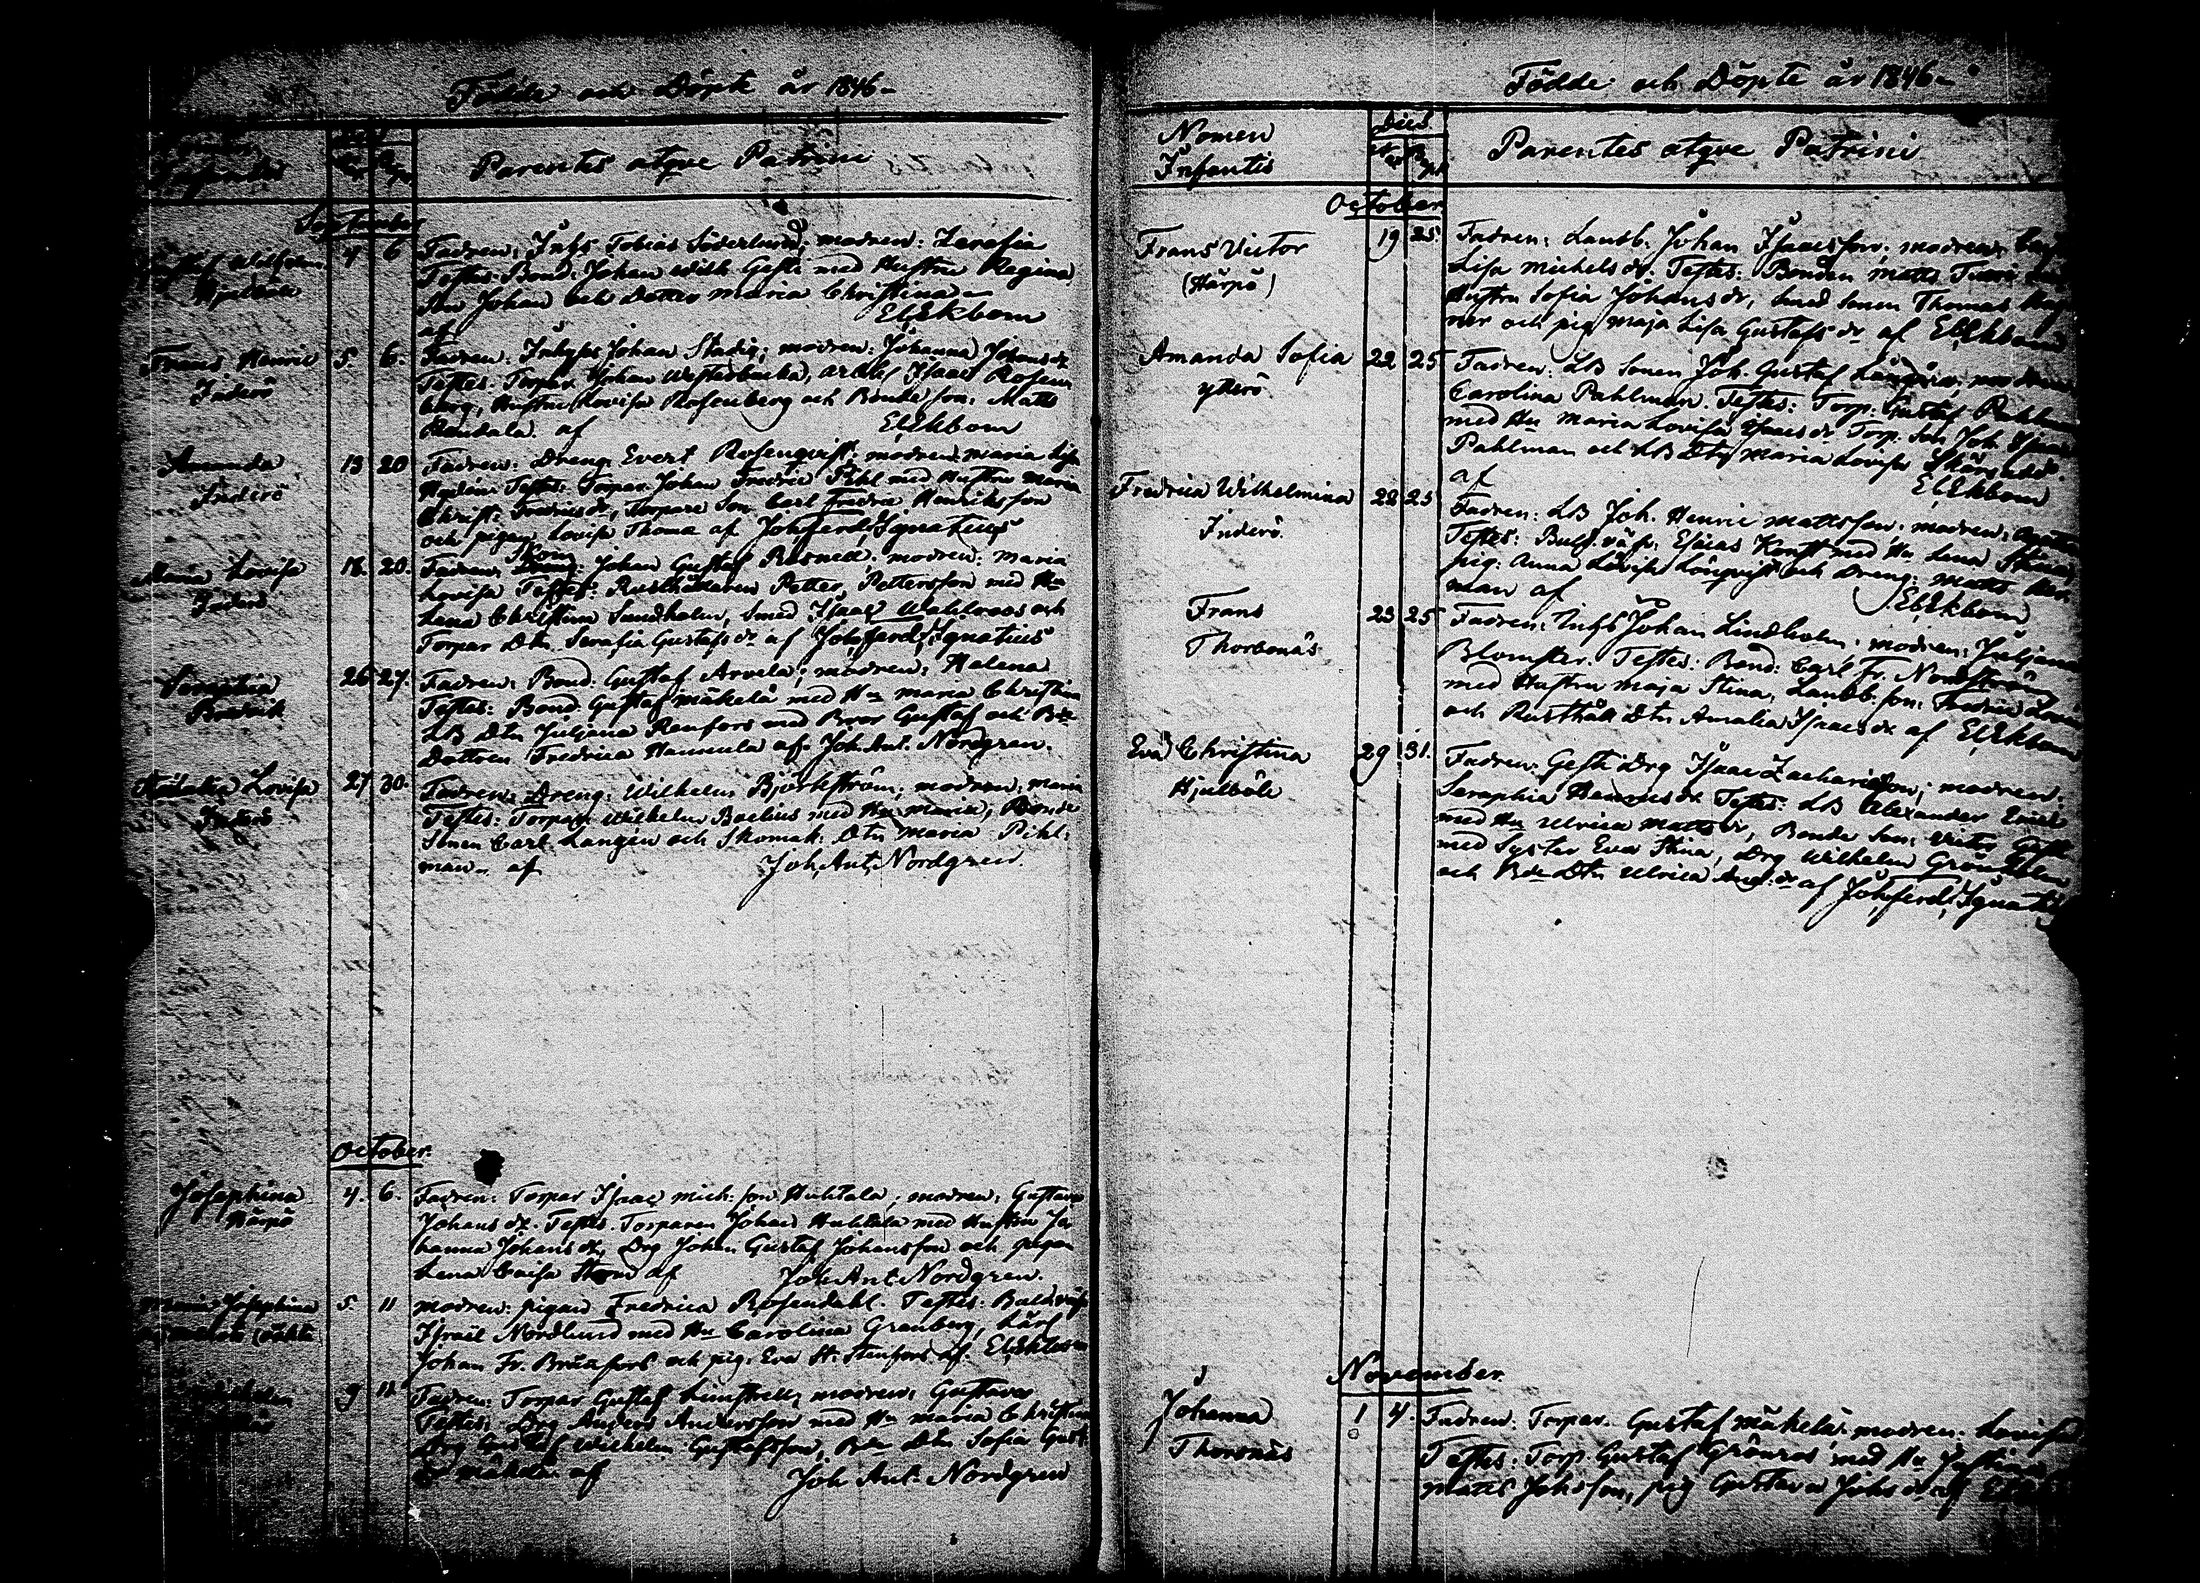 Födde och Döpte år 1846-
Nomen
Infantis
Parentes atqve Patrini
September
Wilhelm
Hjulböle
4 6
Fadren: Inhs Tobias Söderlund; modren: Serafia
Testes: Bond: Johan Wilh Gest: med Hustru Regina
Son Johan och Dotter Maria Christina
af El. Ekbom
Frans Henric
Inderö
5. 6.
Fadren: Inhyses Johan Stadig; modren: Johanna Johans dr
Testes: Torpar Johan Westerbacka, Isaac Rosen
berg, Hustru Lovisa Rosenberg och Bonde son: Matts
af El. Ekbom
Amanda
Inderö
13 20
Fadren: Dreng Evert Rosenqvist; modren Maria Lisa
Testes: Torpar. Johan Fredric Pihl med Hustru Maria
Christ: Fredrics dr, Torpare Son Carl Fredric Henriksson
och pigan Lovisa Thome af Joh. Ferd. Ignatius
Maria Lovisa
Inderö
18. 20.
Skom
Fadren: Johan Gustaf Rosnell; modren: Maria
Lovisa Testes: Rusthållaren Petter Pettersson med Hu
Lena Christina Sundholm, Smed Isaac Wahlroos och
Torpar Dtn Serafia Gustafs dr af Joh. Ferd. Ignatius
Seraphia
26 27.
Fadren: Bond. Gustaf Arvela; modren: Halena
Testes: Bond. Gustaf Mäkelä med Hu Maria Christina
LB Dtn Juljana Renfors med Bror Gustaf och Bde
Dottren Fredrica Hannula af Joh. Ant. Nordgren.
Lovisa
Inderö
27 30.
Fadren: Dreng: Wilhelm Björkström; modren: Maria
Testes: Torpar. Wilhelm Boelius med Hu Maria; Bonde
Sonen Carl Langén och Skomak: Dtn Maria Pihl:
man- af Joh. Ant. Nordgren.
October.
Josephina
Härpö
4. 6.
Fadren: Torpar Isaac Mich: son Huhtala; modren: Gustava
Johans dr. Testes. Torparen Johan Huhtala med Hustru Jo
hanna Johans dr, Drg Johan Gustaf Johansson och pigan
Lena Caisa Strand af Joh. Ant. Nordgren.
Maria Josephina
5. 11
Modren: pigan Fredrica Rosendahl. Testes:
Israel Nordlund med Hu Carolina Granberg, Lärl
Johan Fr. och pig. Eva St. Stenfors af El. Ekbom
9 11
Fadren: Torpar Gustaf modren: Gustava
Testes: Drg Anders Andersson med Hu Maria Christina
Drg Gustaf Wilhelm Gustafsson, Bde Dtn Sofia Gust
dr Mäkelä af Joh. Ant. Nordgren
Födde och Döpte år 1846-
Nomen
Infantis
Dies
Parentes atqve Patrini
October
Frans Victor
(Härpö)
19 25.
Fadren: Landb. Johan Isaacsson; modren:
Lisa Michels dr. Testes: Bonden Matts
Hustru Sofia Johans dr, Smed Sonen Thomas
ner och pig Maja Lisa Gustafs dr af El. Ekbom
Amanda Sofia
ytterö
22 25
Fadren: LB Sonen Joh. Gustaf modren
Carolina Pahlman. Testes: Torp: Gustaf Pahlman
med Hu Maria Lovisa Isacs dr Torp. Son Joh. Isaac
Pahlman och LB Dtn Maria Lovisa
af El. Ekbom
Fredrica Wilhelmina
Inderö
22 25
Fadren: LB Joh. Henric Mattsson; modren: Agata
Testes: Esaias Kenst med Hu Lena Stina,
pig: Anna Lovisa Lönqvist och Dreng: Matts Her
man af El. Ekbom
Frans
Thorsnäs
23 25
Fadren: Inhs Johan Lindholm; modren: Juljana
Blomster. Testes: Bond: Carl Fr. Nordström
med Hustru Maja Stina, Landb. son: Fredric
och Rusthåll Dtn Amalia Isaacs dr af El. Ekbom
Eva Christina
Hjulböle
29 31.
Fadren: Gestk Drg Isaac Zachariesson; modren:
Seraphia Testes: LB Alexander
med Hu Ulrica Matts dr, Bonde Son: Victor Gestk
med Syster Eva Stina, Drg Wilhelm Grönholm
och Bde Dtn Ulrica And: dr af Joh. Ferd. Ignatius
November.
Johanna
Thorsnäs
1 4.
Fadren: Torpar. Gustaf Mäkelä: modren: Lovisa
Testes: Torp. Gustaf Grönroos med Hu Justina
Matts Johsson, pig Gustava Johs dr af